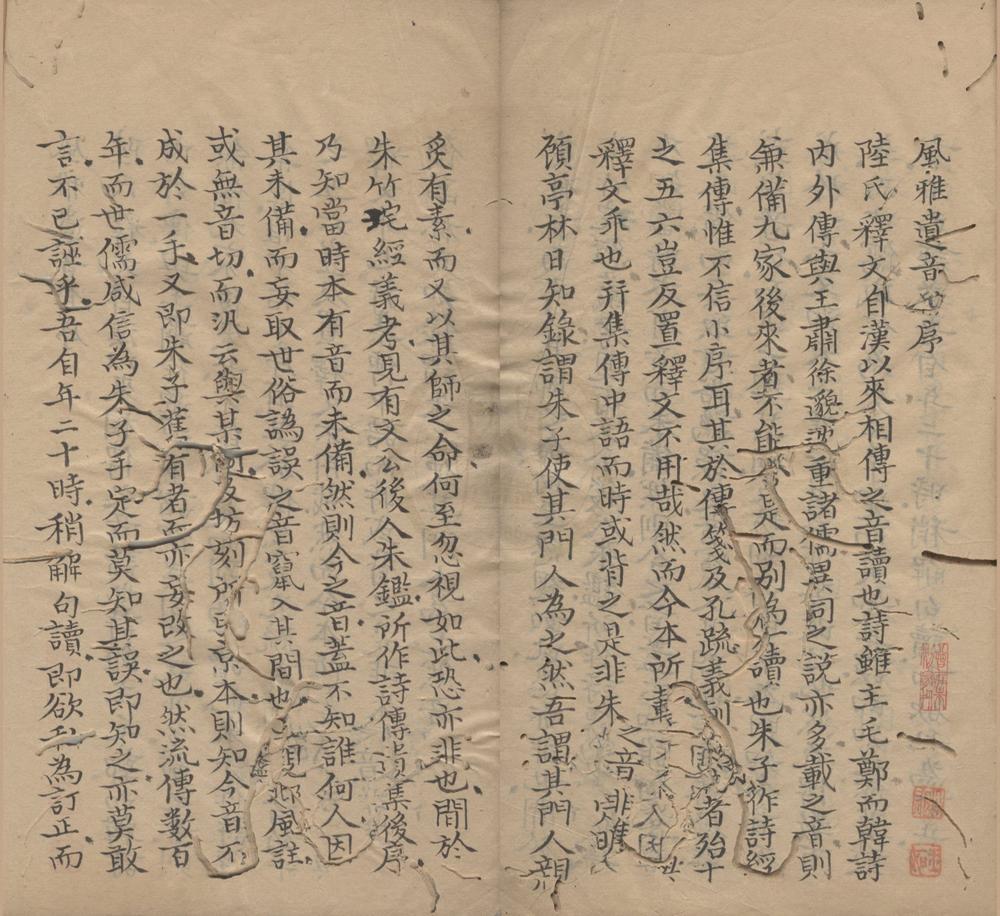 風雅遺音 序
陸氏釋文自漢以來相傳之音讀也詩雖主毛鄭而韓詩
內外傳與王肅徐邈沈重諸儒異同之說亦多載之音則
兼備九家後來者不能 是而別為讀也朱子作詩經
集傳惟不信小序耳其於傳箋及孔疏義 者殆十
之五六豈反置釋文不用哉然而今本所載 入 
釋文乖也并集傳中語而時或背之是非朱 之音 明
顧亭林日知錄謂朱子使其門人為之然吾謂其門人親
炙有素而又以其師之命何至忽視如此恐亦非也間於
朱竹垞經義考見有文公後人朱鑑所作詩傳遺集後序
乃知當時本有音而未備然則今之音蓋不知誰何人因
其未備而妄取世俗譌誤之音竄入其間也 觀邶風註
或無音切而汎云與某同及坊刻所 京本則知今音不
成於一手又即朱子舊有者而亦妄改之也然流傳數百
年而世儒咸信為朱子手定而莫知其誤即知之亦莫敢
言不已誣乎吾自年二十時稍解句讀即欲 為訂正而